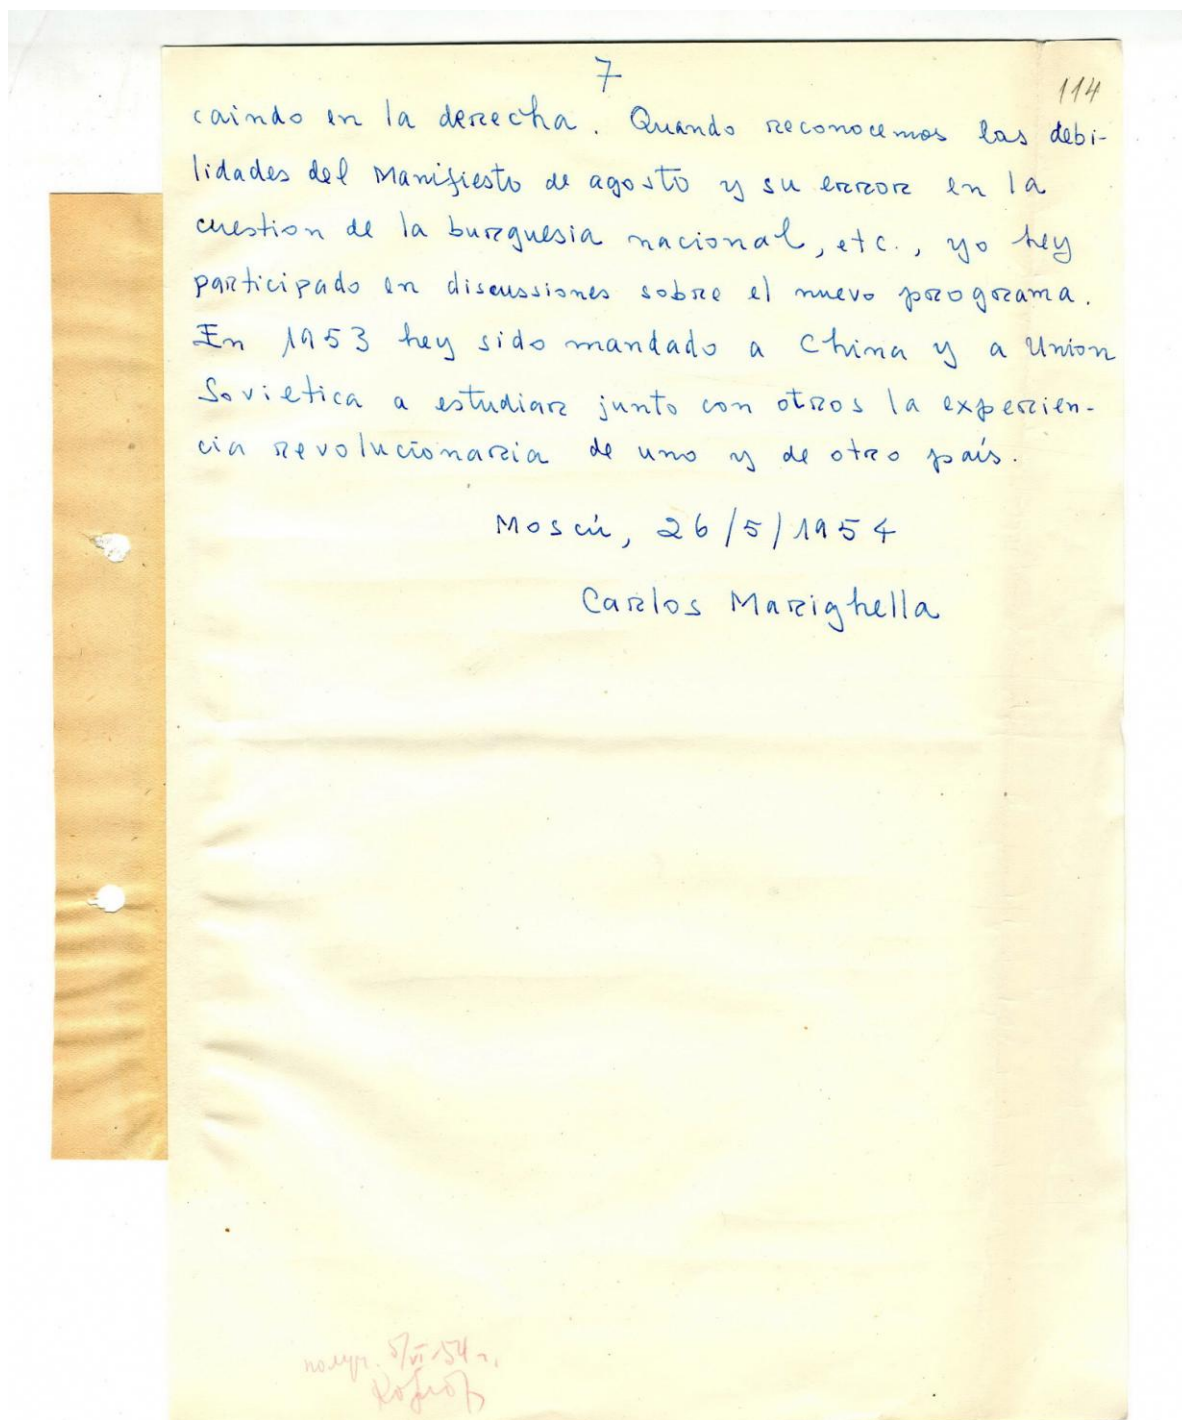 7
114
caindo en la derecha. Quando reconocemos las debi-
lidades del Manifiesto de agosto y su error en la
cuestion de la burguesia nacional, etc., yo hey
participado en discussiones sobre el nuevo programa.
En 1953 hey sido mandado a China y a Union
Sovietica a estudiar junto con otros la experien-
cia revolucionaria de uno y de otro país.
Moscú, 26/5/1954
Carlos Marighella
получ. 5/VI-54 г.